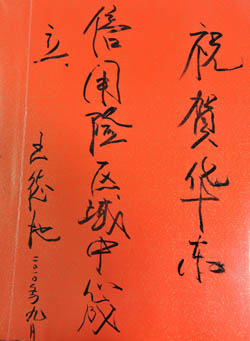 祝贺华东
信用险区域中心成
立
王
二〇一〇年九月